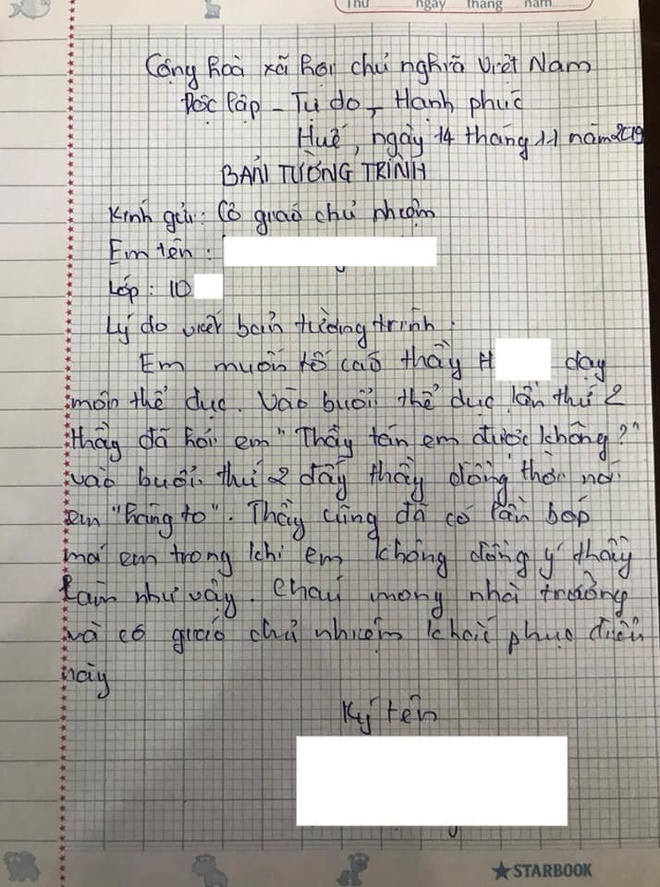 Thứ ngày tháng năm
Cộng hoà xã hội chủ nghĩa Việt Nam
Độc lập - Tự do - Hạnh phúc
Huế, ngày 14 tháng 11 năm 2019
BẢN TƯỜNG TRÌNH
Kính gửi: Cô giáo chủ nhiệm
Em tên :
Lớp: 10
Lý do viết bản tường trình:
Em muốn tố cáo thầy H dạy
môn thể dục. Vào buổi thể dục lần thứ 2
thầy đã hỏi em "Thầy tán em được không?"
vào buổi thứ 2 đấy thầy đồng thời nói
em "hàng to". Thầy cũng đã có lần bóp
má em trong khi em không đồng ý thầy
làm như vậy. Cháu mong nhà trường
và cô giáo chủ nhiệm khắc phục điều
này
Ký tên
STARBOOK